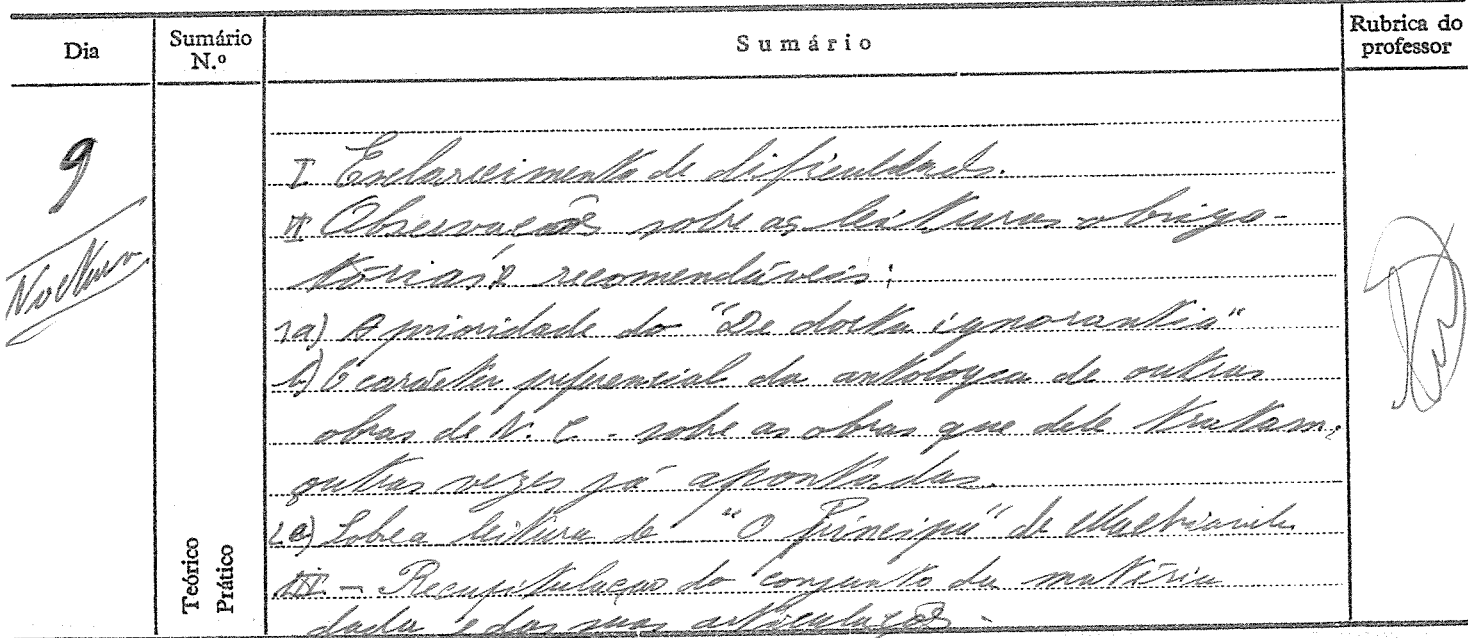 Dia
Sumário N.º
Sumário
Rubrica do professor
9
Nocturno
Teórico
Prático
I Esclarecimento de dificuldades.
II Observações sobre as leituras obriga-
tórias e recomendáveis:
1a) A prioridade do "De docta ignorantia"
b) O carácter preferencial da antologia de outras
obras de N. C. - sobre as obras que dele tratam,
outras vezes já apontadas.
2a) Sobre a leitura de "O Príncipe" de Machiavelli
III - Recapitulação do conjunto da matéria
dada e das suas articulações.